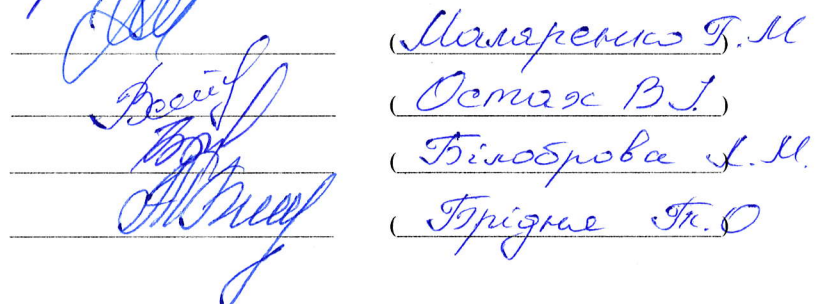 (Маляренко Г.М)
(Остах В.І.)
(Білоброва Л.М.)
(Брідня Т.О)